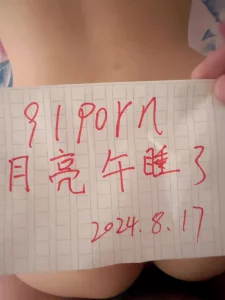 91porn
月亮午睡了
2024.8.17